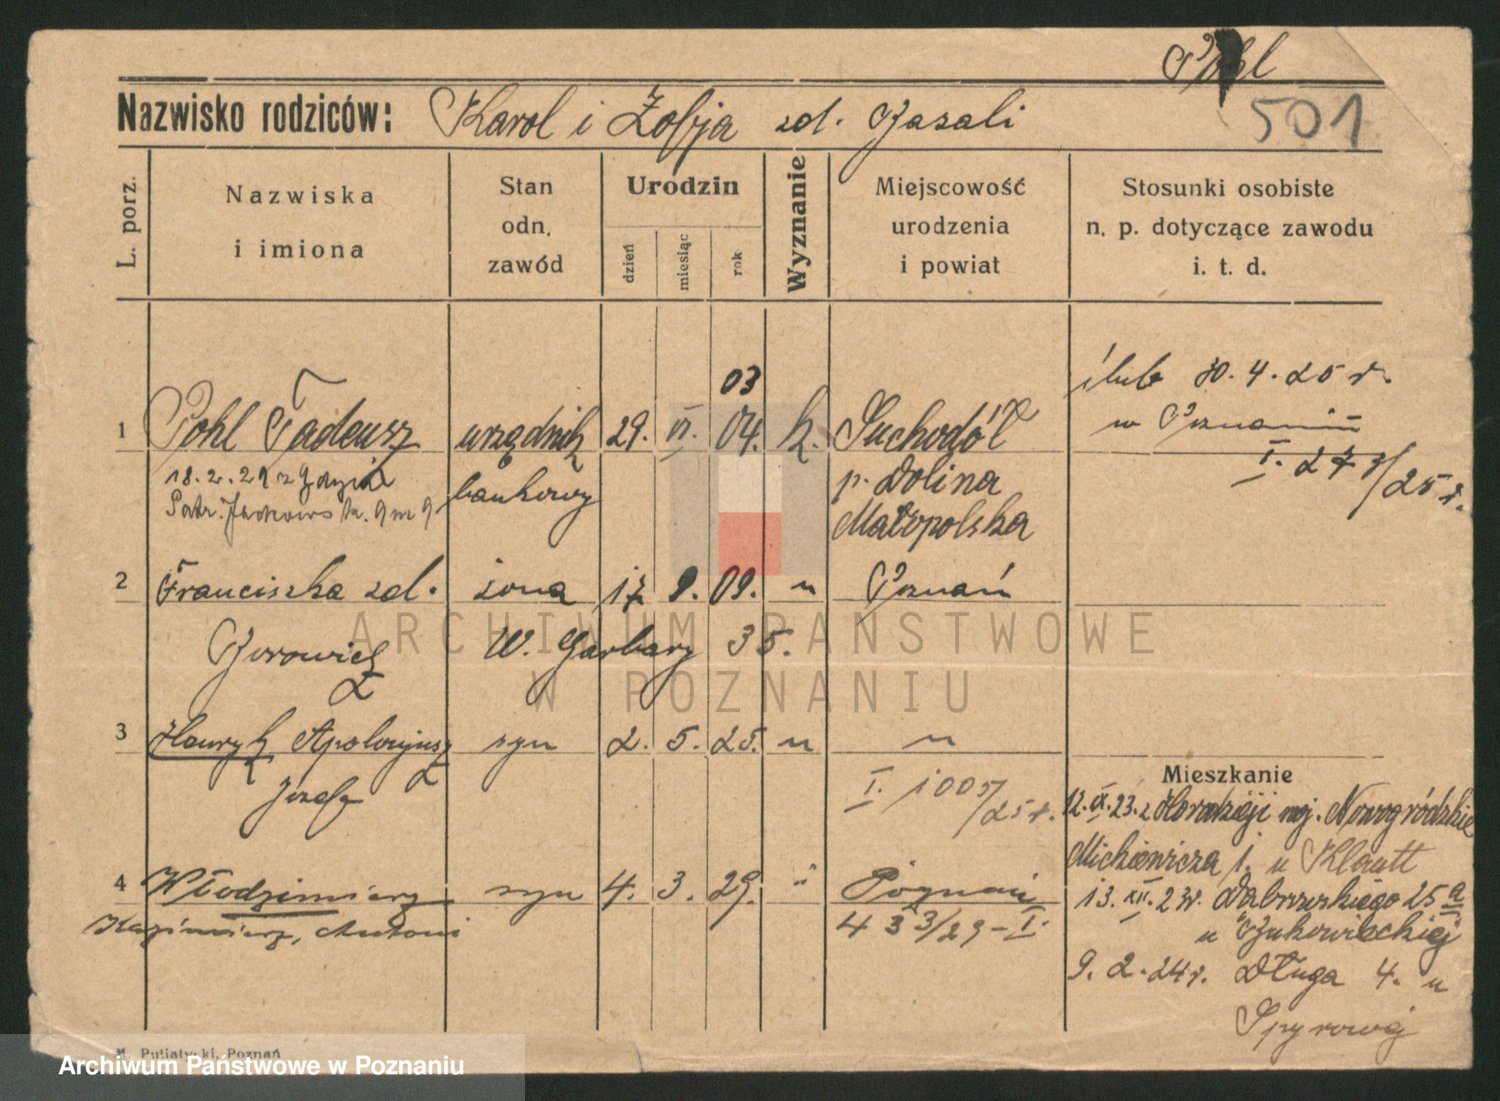 Pohl
Nazwisko rodziców: Karol i Zofja zd.
501
L. porz.
Nazwiska
i imiona
Stan
odn.
zawód
Urodzin
dzień
miesiąc
rok
Wyznanie
Miejscowość
urodzenia
i powiat
Stosunki osobiste
n. p. dotyczące zawodu
i. t. d.
ślub 30. 4. 25 r.
w Poznaniu
I. 277/25 r.
03
1 Pohl Tadeusz urzędnik 29. VI. 04. k. Suchodół
18. 2. 29 z Gdyni bankowy p. Dolina
Małopolska
2 Franciszka zd. żona 17 9. 09. " Poznań
W. Garbary 35.
3 Henryk Apolinary syn 2. 5. 25. " "
Józef
I. 1005/25 r.
Mieszkanie
12. IX. 23. z Nowogródzkie
Mickiewicza 1. u
4 Włodzimierz syn 4. 3. 29. " Poznań
Kazimierz, Antoni
433/29 - I.
13. XII. 23 r. Dąbrowskiego 25a
u Żukowieckiej
9. 2. 24 r. Długa 4. u
Spyrowej
M. Putiatycki, Poznań
ARCHIWUM PAŃSTWOWE
W POZNANIU
Archiwum Państwowe w Poznaniu